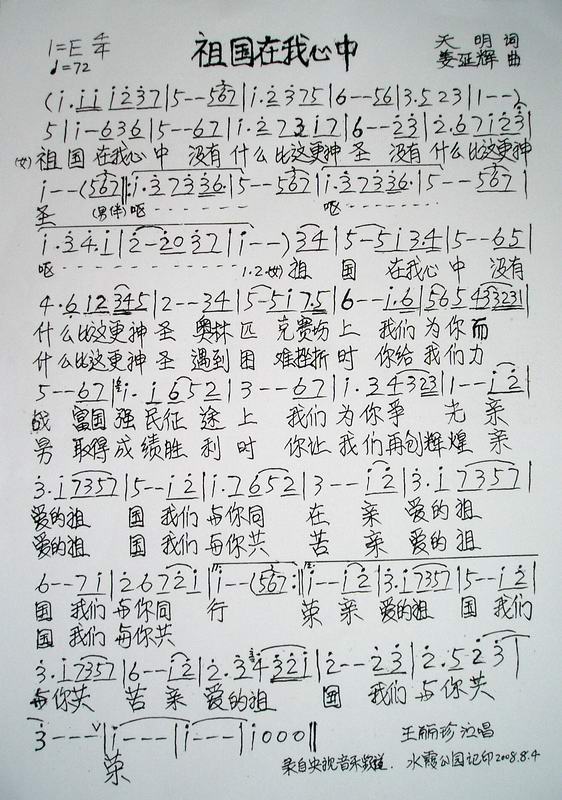 1=E 4/4 祖国在我心中 天明 词
♩=72 姜延辉 曲
(i·ii i237|5--567|i·2375|6--56|3·523|1--)
5|i-636|5--67|i·273i7|6--23|2·67i23|
(女)祖 国 在我心 中 没有 什么 比这更神 圣 没有 什么 比这更神
i--(567‖:i·37336·|5--567|i·37336·|5--567|
圣 (男伴)呕 呕
i·34·i|2-2037|i--)34|5-5i34|5--65|
呕 1.2.(女)祖 国 在我心 中 没有
4·612345|2--34|5-5i75|6--i6|565433231|
什么 比这更神 圣 奥林 匹 克赛场 上 我们 为你而
什么 比这更神 圣 遇到 困 难挫折 时 你给 我们力
5--67|i·i652|3--67|i·34323|1--i2|
战 富国 强 民征 途 上 我们 为你争 光 亲
男 取得 成 绩胜 利 时 你让 我们再创辉 煌 亲
3·i7357|5--i2|i·7652|3--i2|3·i7357|
爱的祖 国 我们 与你同 在 亲 爱的 祖
爱的祖 国 我们 与你共 苦 亲 爱的 祖
6--7i|2672i|i--(567:‖i--i2|3·i7357|5--i2|
国 我们 与你同 行 荣 亲 爱的祖 国 我们
国 我们 与你共
3·i7357|6--i2|2·3432i|2--23|2·523|
与你共 苦 亲 爱的祖 国 我们 与你共
3---ⱽ|i---|i---|i000‖
荣
王丽珍 泣唱
录自央视音乐频道. 水霞公园记印2008.8.4